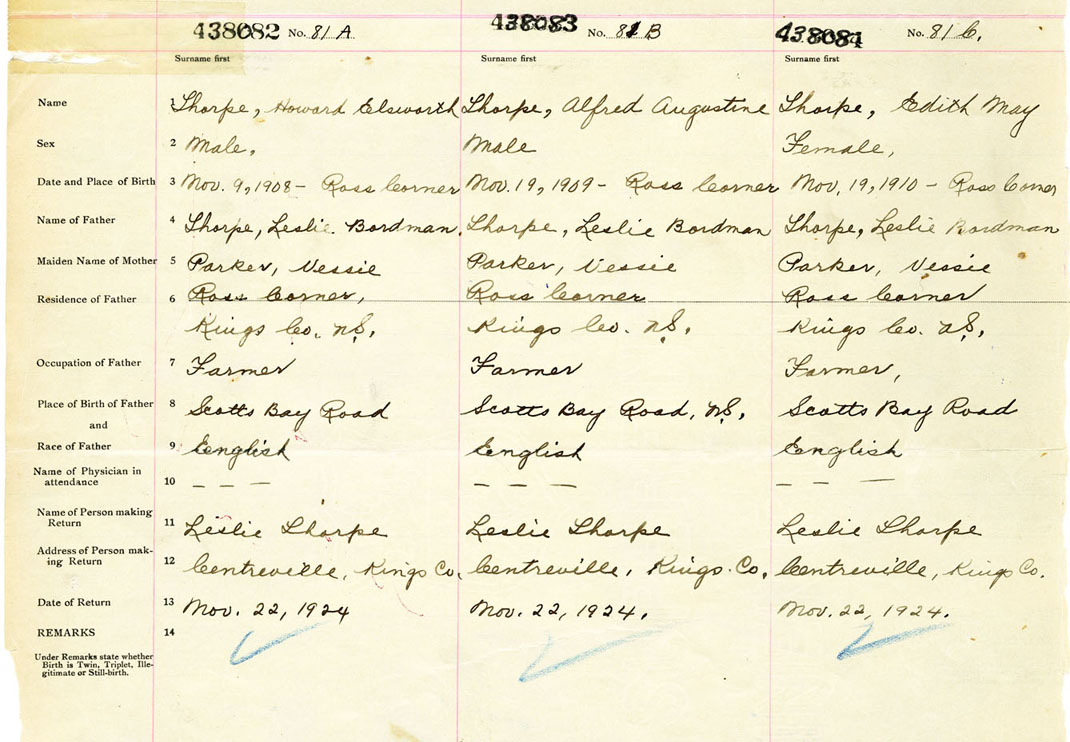 438082 No. 81 A 438083 No. 81 B 438084 No. 81 C.
Surname first Surname first Surname first
Name 1 Thorpe, Howard Elsworth Thorpe, Alfred Augustine Thorpe, Edith May
Sex 2 Male, Male Female,
Date and Place of Birth 3 Nov. 9, 1908 - Ross Corner Nov. 19, 1909 - Ross Corner Nov. 19, 1910 - Ross Corner
Name of Father 4 Thorpe, Leslie Bordman. Thorpe, Leslie Bordman Thorpe, Leslie Bordman
Maiden Name of Mother 5 Parker, Vessie Parker, Vessie Parker, Vessie
Residence of Father 6 Ross Corner, Ross Corner Ross Corner
Kings Co. N.S, Kings Co. N.S, Kings Co. N.S,
Occupation of Father 7 Farmer Farmer Farmer,
Place of Birth of Father 8 Scotts Bay Road Scotts Bay Road, N.S, Scotts Bay Road
and
Race of Father 9 English English English
Name of Physician in
attendance 10 — — — — — — — — —
Name of Person making
Return 11 Leslie Thorpe Leslie Thorpe Leslie Thorpe
Address of Person mak-
ing Return 12 Centreville, Kings Co. Centreville, Kings Co. Centreville, Kings Co.
Date of Return 13 Nov. 22, 1924 Nov. 22, 1924. Nov. 22, 1924.
REMARKS 14
Under Remarks state whether
Birth is Twin, Triplet, Ille-
gitimate or Still-birth.